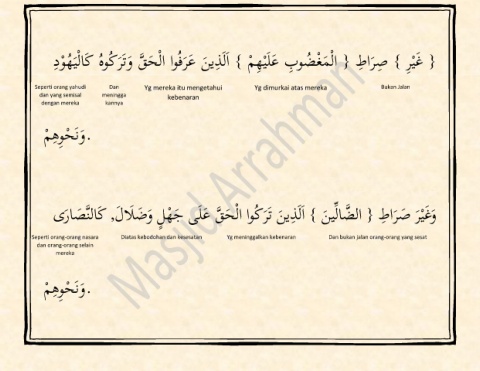 { غَيْرِ } صِرَاطِ { الْمَغْضُوبِ عَلَيْهِمْ } اَلَّذِينَ عَرَفُوا الْحَقَّ وَتَرَكُوهُ كَالْيَهُوْدِ
Bukan Jalan
Yg dimurkai atas mereka
Yg mereka itu mengetahui
kebenaran
Dan
meningga
kannya
Seperti orang yahudi
dan yang semisal
dengan mereka
وَنَحْوِهِمْ.
وَغَيْرَ صَرَاطِ { الضَّالِّينَ } اَلَّذِينَ تَرَكُوا الْحَقَّ عَلَى جَهْلٍ وَضَلَالَ, كَالنَّصَارَى
Dan bukan jalan orang-orang yang sesat
Yg meninggalkan kebenaran
Diatas kebodohan dan kesesatan
Seperti orang-orang nasara
dan orang-orang selain
mereka
وَنَحْوِهِمْ.
Masjid Arrahman